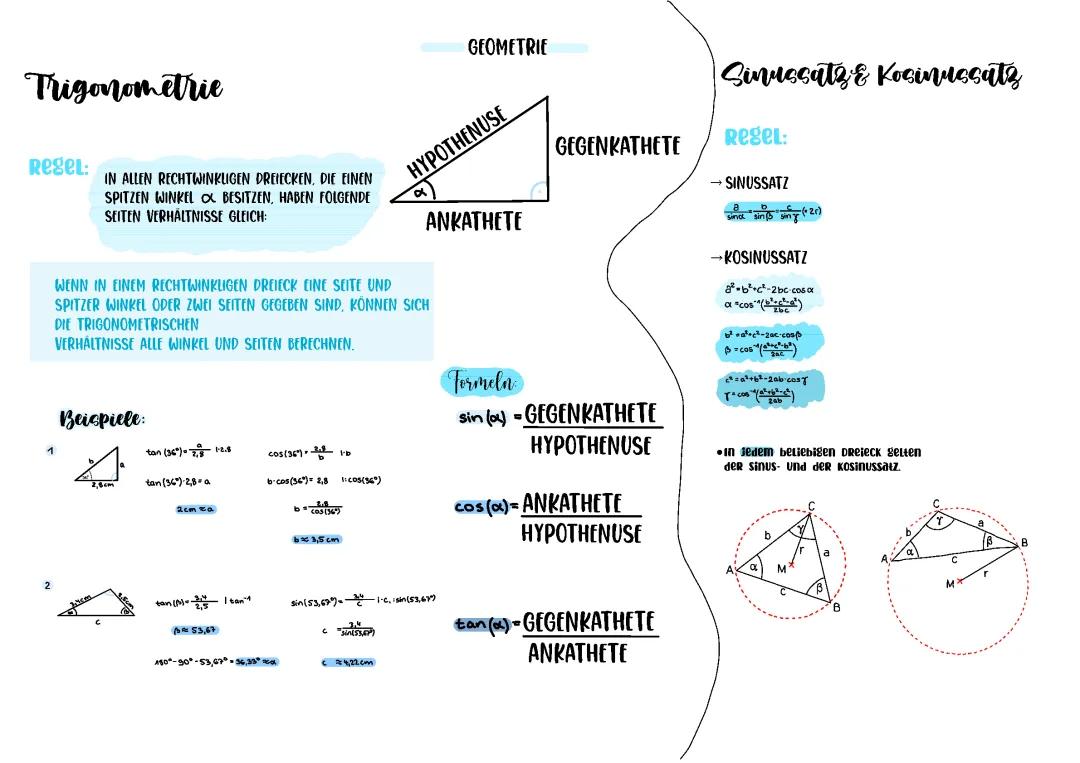 GEOMETRIE
Trigonometrie
Regel:
IN ALLEN RECHTWINKLIGEN DREIECKEN, DIE EINEN
SPITZEN WINKEL α BESITZEN, HABEN FOLGENDE
SEITEN VERHÄLTNISSE GLEICH:
HYPOTHENUSE
GEGENKATHETE
α
ANKATHETE
WENN IN EINEM RECHTWINKLIGEN DREIECK EINE SEITE UND
SPITZER WINKEL ODER ZWEI SEITEN GEGEBEN SIND, KÖNNEN SICH
DIE TRIGONOMETRISCHEN
VERHÄLTNISSE ALLE WINKEL UND SEITEN BERECHNEN.
Formeln:
sin(α) = GEGENKATHETE
HYPOTHENUSE
cos(α) = ANKATHETE
HYPOTHENUSE
tan(α) = GEGENKATHETE
ANKATHETE
Beispiele:
1
b
a
36°
2,8cm
tan(36°) = a/2,8 |·2,8
tan(36°)·2,8 = a
2cm ≈ a
cos(36°) = 2,8/b |·b
b·cos(36°) = 2,8 |:cos(36°)
b = 2,8/cos(36°)
b ≈ 3,5cm
2
3,4cm
2,5cm
α
β
c
tan(β) = 3,4/2,5 | tan⁻¹
β ≈ 53,67
180° - 90° - 53,67° = 36,33° ≈ α
sin(53,67°) = 3,4/c |·c, :sin(53,67°)
c = 3,4/sin(53,67°)
c ≈ 4,22cm
Sinussatz & Kosinussatz
Regel:
→ SINUSSATZ
a/sinα = b/sinβ = c/sinγ (=2r)
→ KOSINUSSATZ
a² = b²+c²-2bc·cosα
α = cos⁻¹(b²+c²-a²/2bc)
b² = a²+c²-2ac·cosβ
β = cos⁻¹(a²+c²-b²/2ac)
c² = a²+b²-2ab·cosγ
γ = cos⁻¹(a²+b²-c²/2ab)
• In jedem beliebigen Dreieck gelten
der Sinus- und der Kosinussatz.
C
b
γ
r
a
A
α
M
c
β
B
C
γ
a
b
A
α
c
β
B
M
r